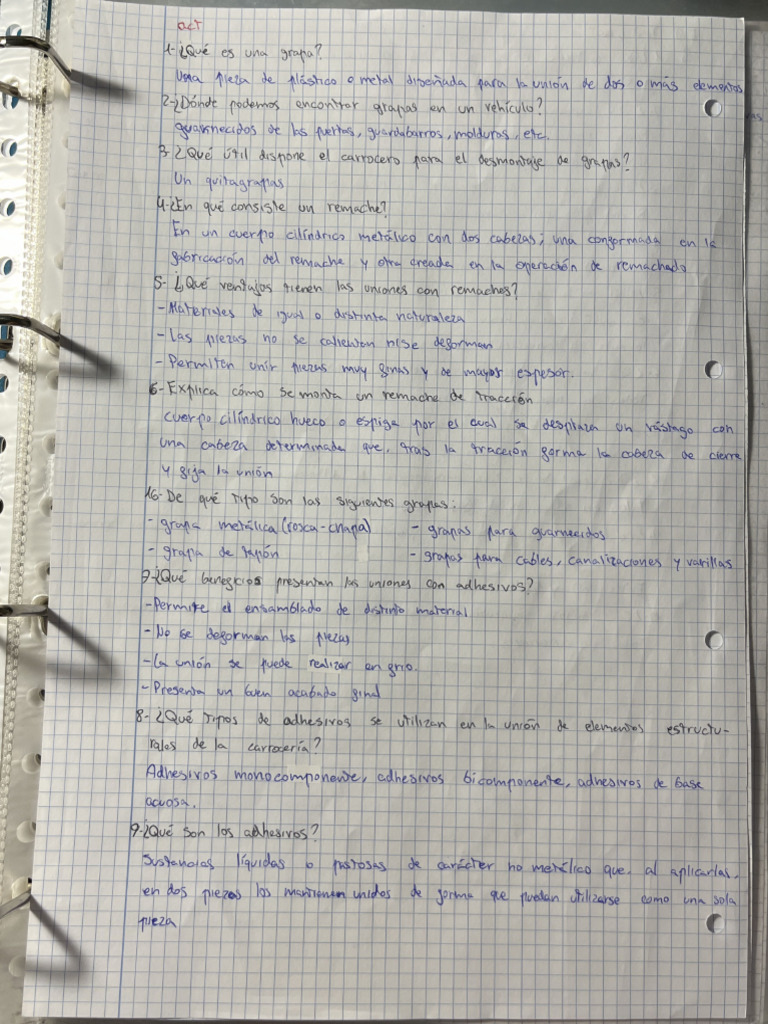 act
1-¿Qué es una grapa?
Una pieza de plástico o metal diseñada para la unión de dos o más elementos
2-¿Dónde podemos encontrar grapas en un vehículo?
guarnecidos de las puertas, guardabarros, molduras, etc.
3-¿Qué útil dispone el carrocero para el desmontaje de grapas?
Un quitagrapas
4-¿En qué consiste un remache?
En un cuerpo cilíndrico metálico con dos cabezas; una conformada en la
fabricación del remache y otra creada en la operación de remachado
5- ¿Qué ventajas tienen las uniones con remaches?
-Materiales de igual o distinta naturaleza
-Las piezas no se calientan ni se deforman
-Permiten unir piezas muy finas y de mayor espesor.
6-Explica cómo se monta un remache de tracción
cuerpo cilíndrico hueco o espiga por el cual se desplaza un vástago con
una cabeza determinada que, tras la tracción forma la cabeza de cierre
y fija la unión
16-De qué tipo son las siguientes grapas:
-grapa metálica (rosca-chapa) - grapas para guarnecidos
-grapa de tapón - grapas para cables, canalizaciones y varillas
7-¿Qué beneficios presentan las uniones con adhesivos?
-Permite el ensamblado de distinto material
-No se deforman las piezas
-La unión se puede realizar en frio.
-Presenta un buen acabado final
8- ¿Qué tipos de adhesivos se utilizan en la unión de elementos estructu-
rales de la carrocería?
Adhesivos monocomponente, adhesivos bicomponente, adhesivos de base
acuosa.
9-¿Qué son los adhesivos?
Sustancias líquidas o pastosas de carácter no metálico que, al aplicarlas,
en dos piezas las mantienen unidos de forma que puedan utilizarse como una sola
pieza